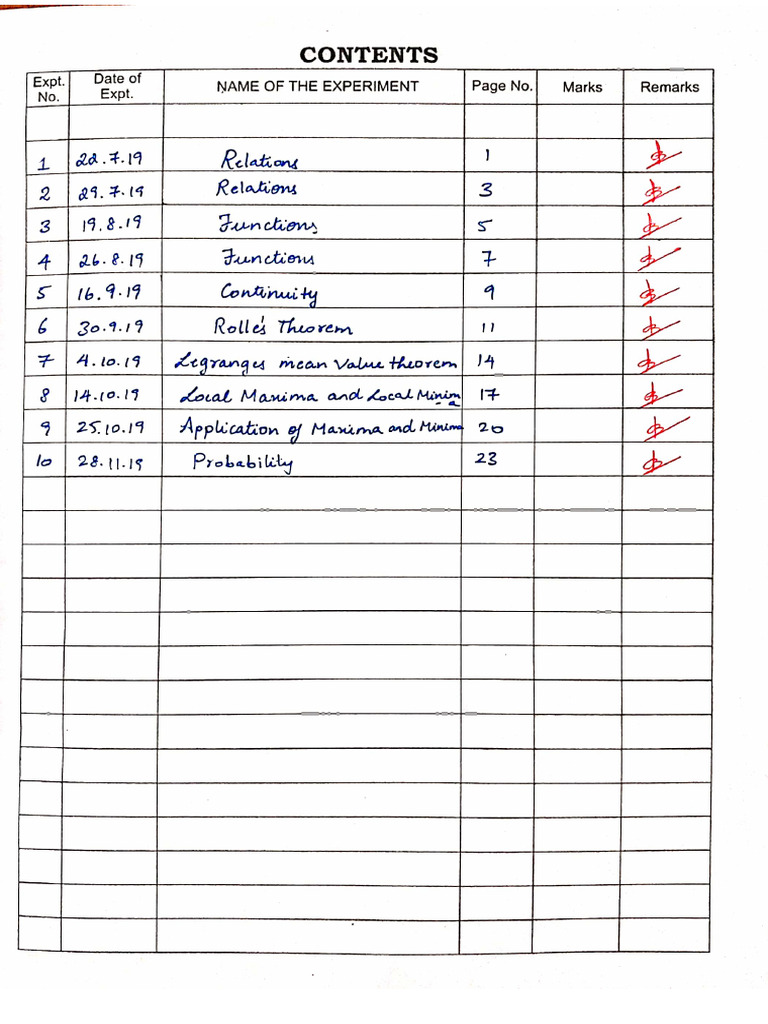 CONTENTS
Expt. No. Date of Expt. NAME OF THE EXPERIMENT Page No. Marks Remarks
1 22.7.19 Relations 1
2 29.7.19 Relations 3
3 19.8.19 Functions 5
4 26.8.19 Functions 7
5 16.9.19 Continuity 9
6 30.9.19 Rolle's Theorem 11
7 4.10.19 Legranges mean value theorem 14
8 14.10.19 Local Maxima and Local Minima 17
9 25.10.19 Application of Maxima and Minima 20
10 28.11.19 Probability 23